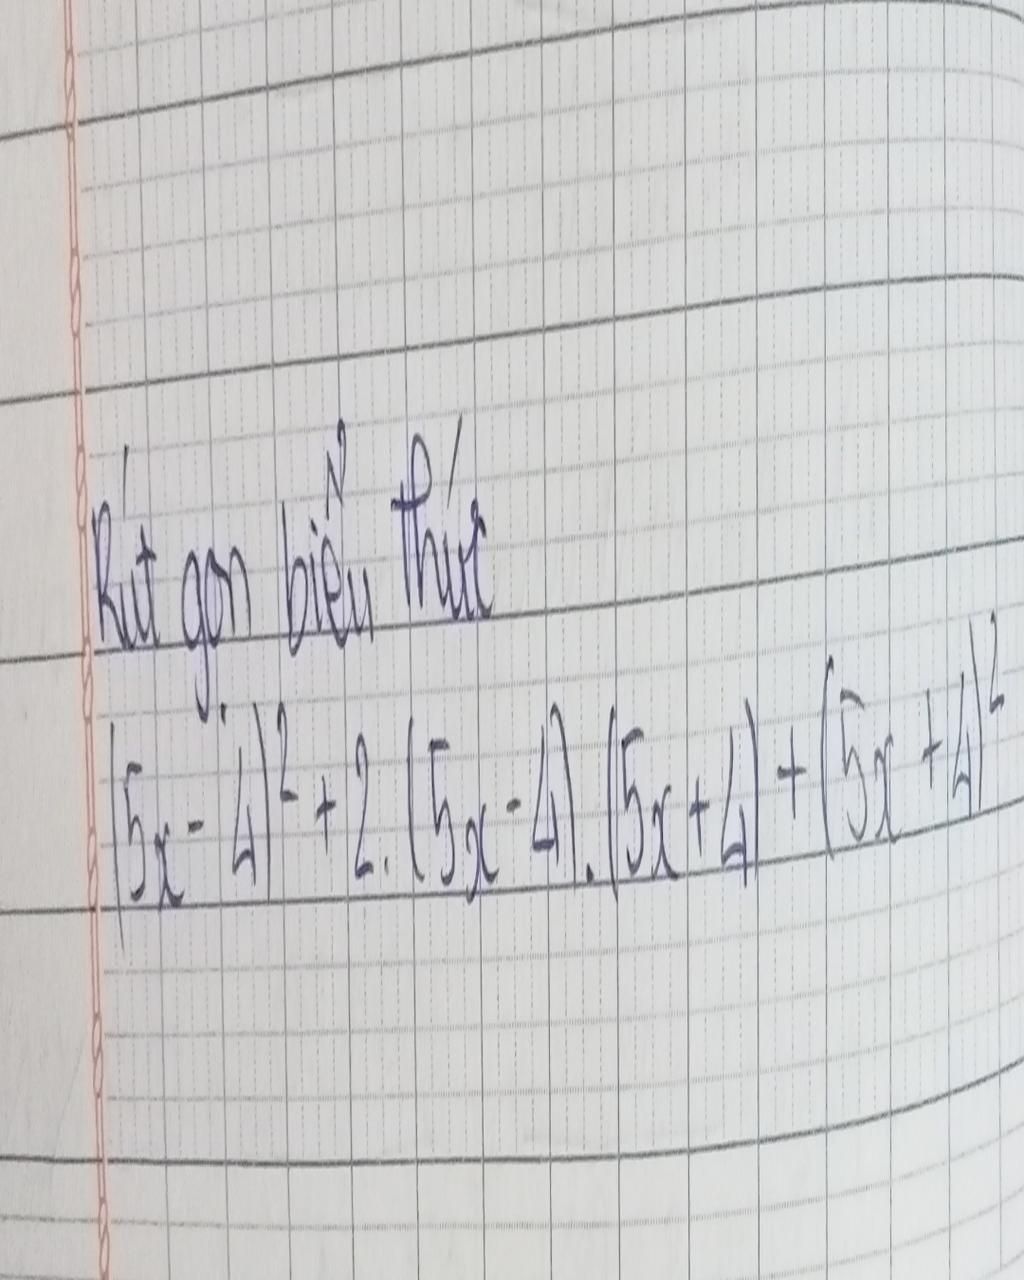 Rút gọn biểu thức
(5x - 4)² + 2. (5x - 4). (5x + 4) + (5x + 4)²